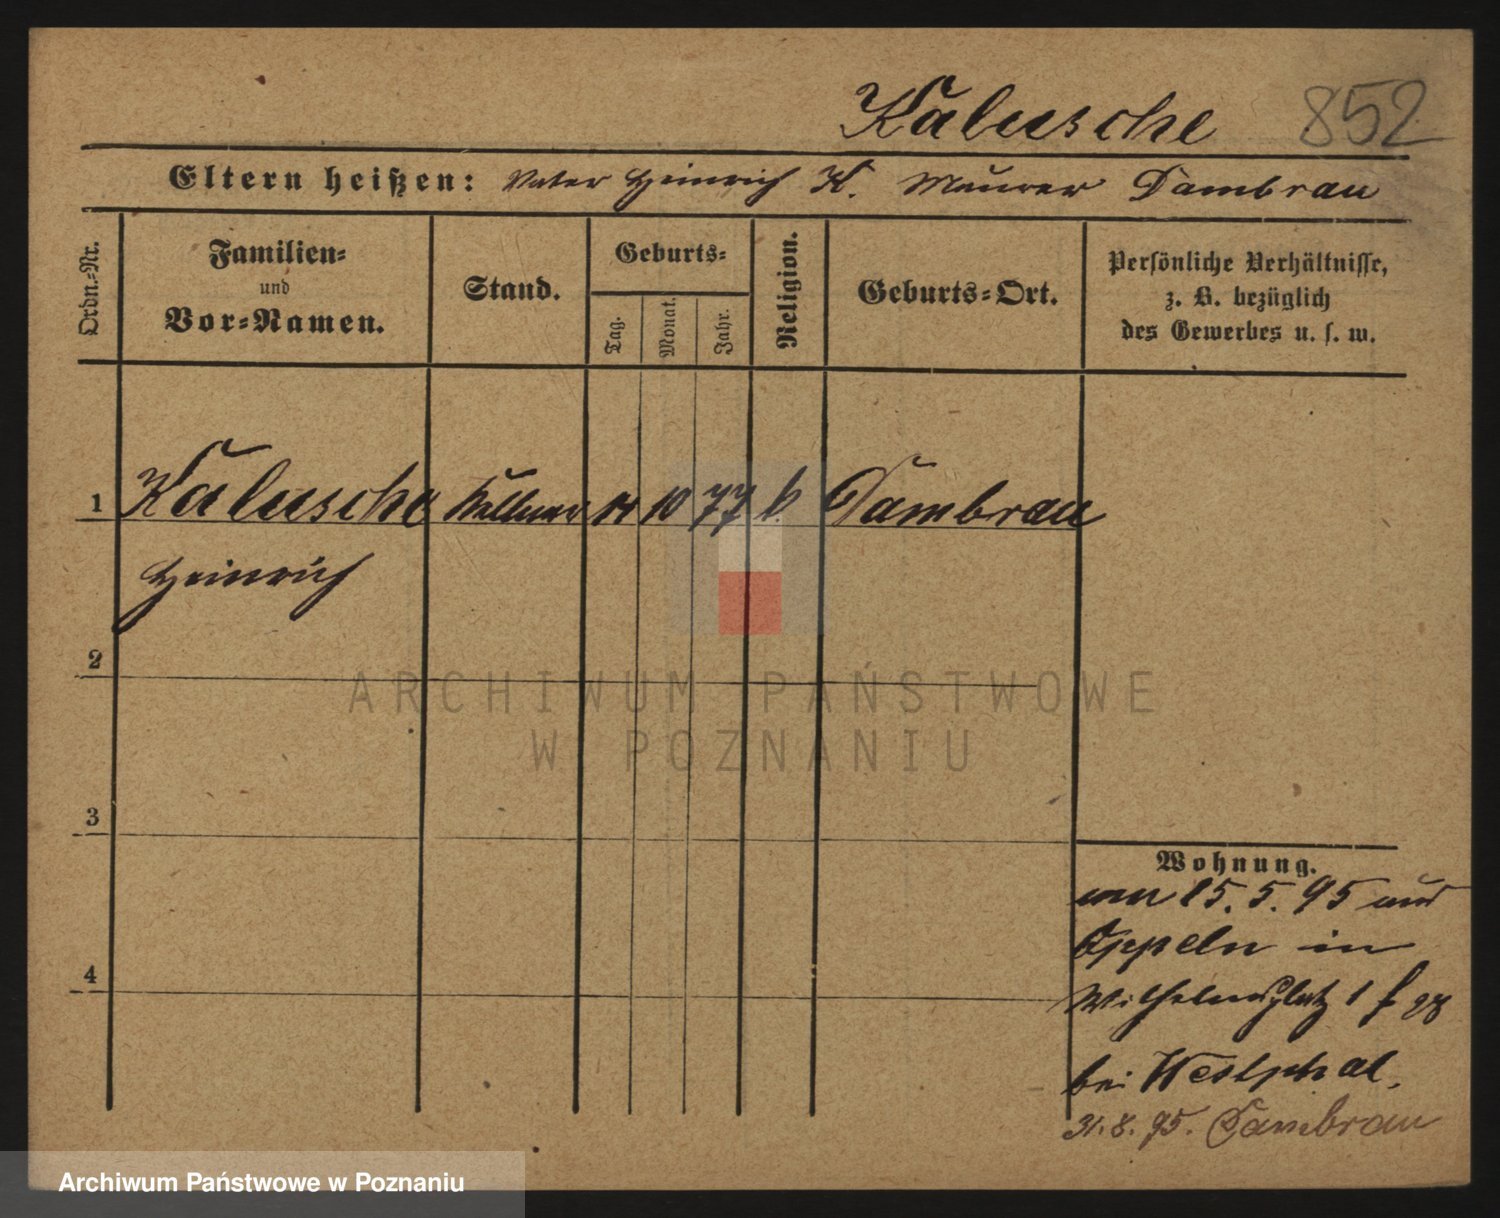 Kalusche 852
Eltern heißen: Vater Heinrich K. Maurer Dambrau
Ordn.-Nr.
Familien-
und
Vor-Namen.
Stand.
Geburts-
Tag.
Monat.
Jahr.
Religion.
Geburts-Ort.
Persönliche Verhältnisse,
z. B. bezüglich
des Gewerbes u. s. w.
1 Kalusche Kellner 10 77 k. Dambrau
Heinrich
2
3
4
ARCHIWUM PAŃSTWOWE
W POZNANIU
Wohnung.
15. 5. 95 aus
Oppeln in
Wilhelmsplatz 1
bei Westphal.
31. 8. 95. Dambrau
Archiwum Państwowe w Poznaniu